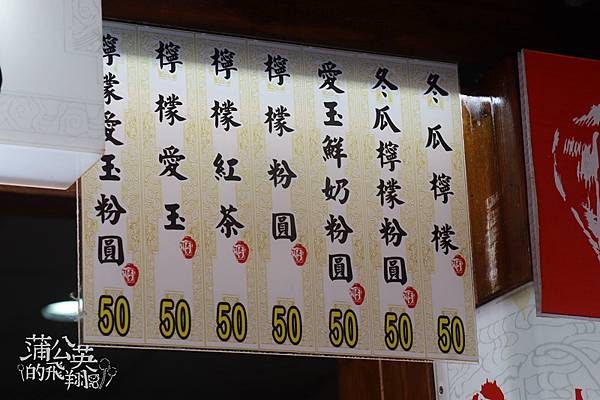 冬瓜檸檬 50
冬瓜檸檬粉圓 50
愛玉鮮奶粉圓 50
檸檬粉圓 50
檸檬紅茶 50
檸檬愛玉 50
檸檬愛玉粉圓 50
蒲公英
的飛翔